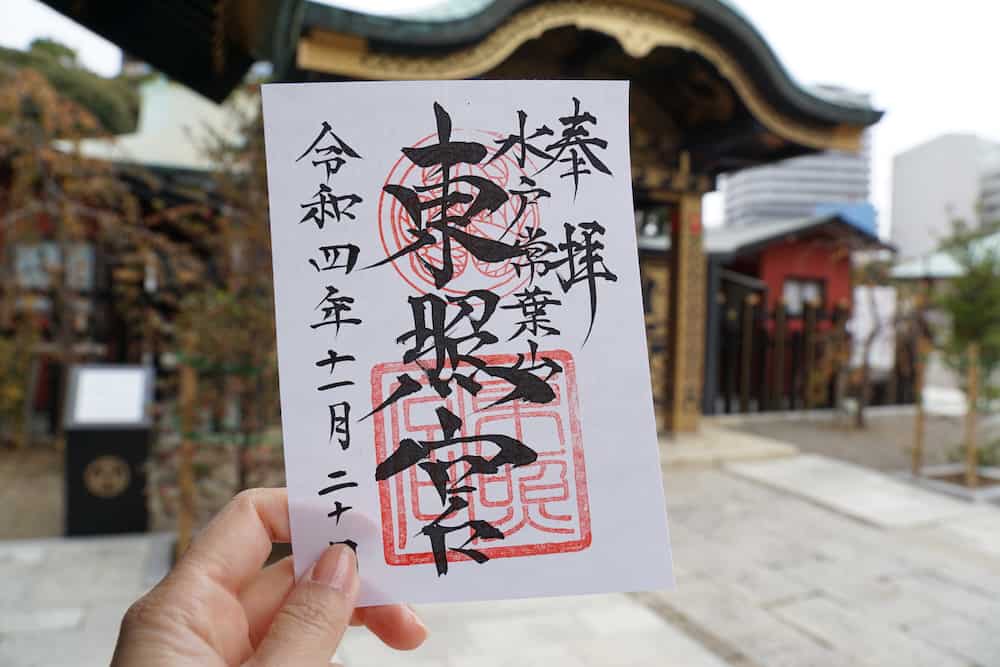 奉拝
水戸常葉山
東照宮
令和四年十一月二十日